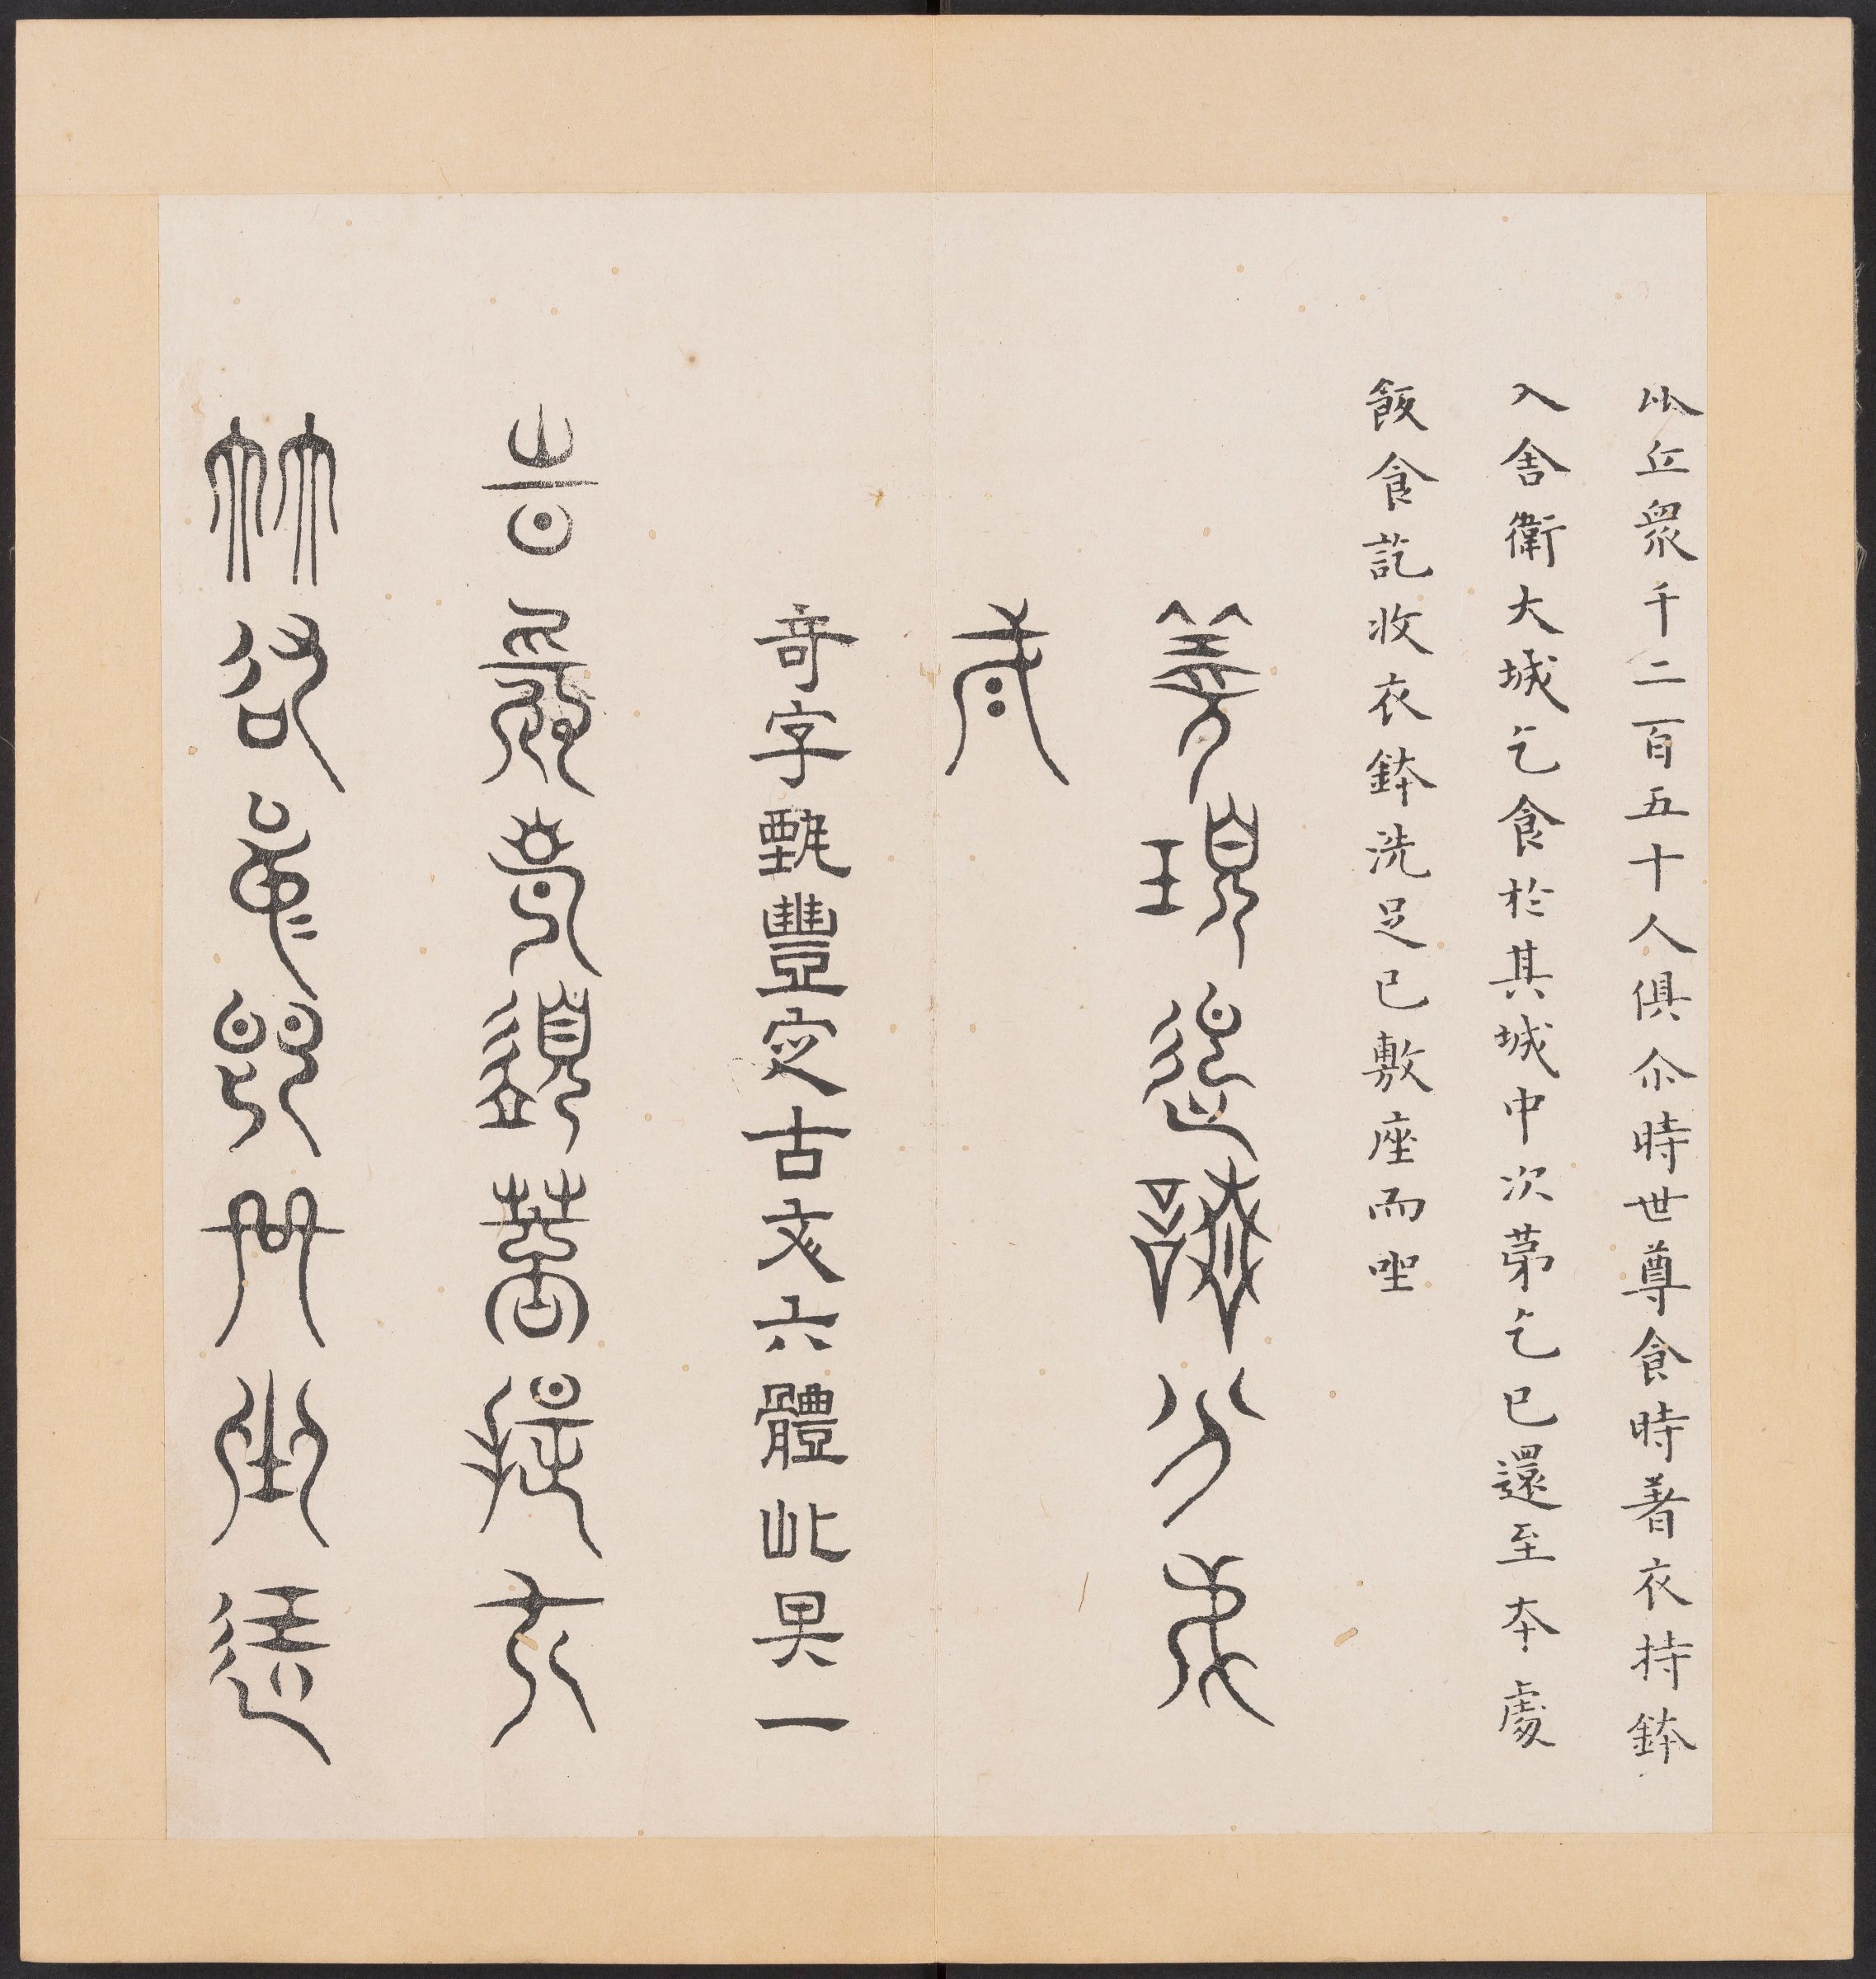 比丘眾千二百五十人俱尒時世尊食時著衣持鉢
入舍衛大城乞食於其城中次第乞已還至本處
飯食訖收衣鉢洗足已敷座而坐
善現起請分弟
弍
奇字甄豐定古文六體此其一
時長老須菩提在